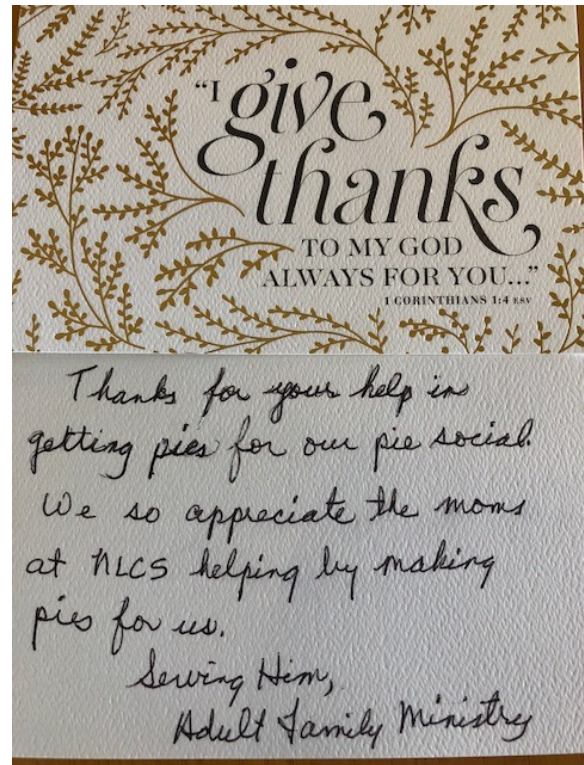 "I give
thanks
TO MY GOD
ALWAYS FOR YOU..."
1 CORINTHIANS 1:4 ESV
Thanks for your help in
getting pies for our pie social.
We so appreciate the moms
at NLCS helping by making
pies for us.
Serving Him,
Adult Family Ministry